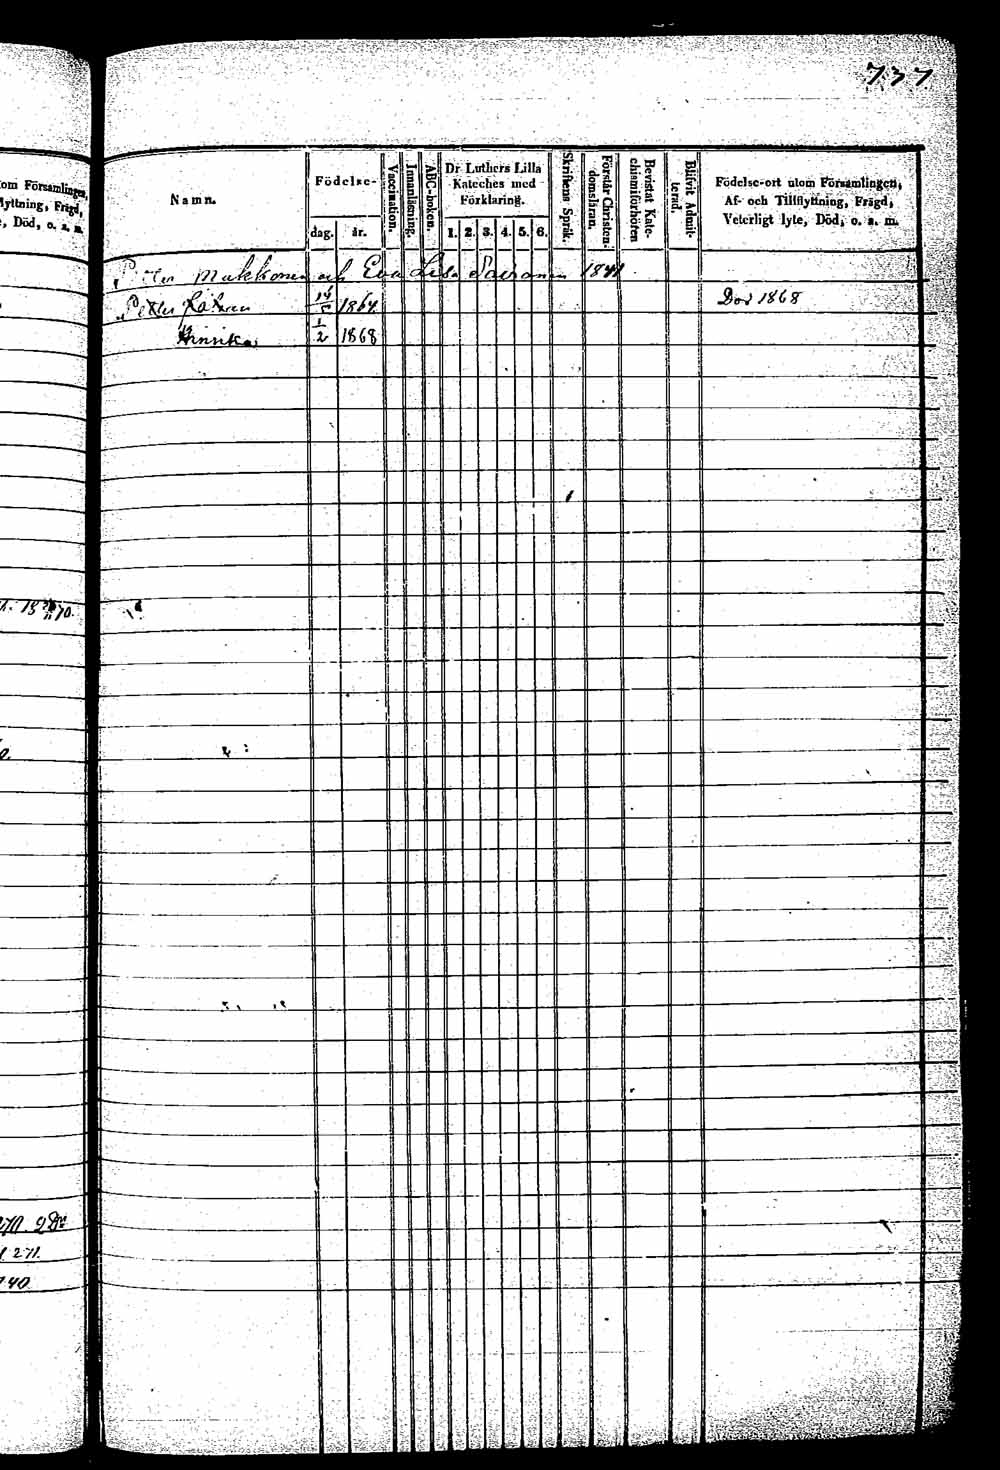 737
om Församlingen,
lyttning, Frägd,
, Död, o. s. m.
Namn.
Födelse-
dag. år.
Vaccination.
Innanläsning.
ABC-boken.
Dr Luthers Lilla
Kateches med
Förklaring.
1. 2. 3. 4. 5. 6.
Skriftens Språk.
Förstår Christen-
domsläran.
Bevistat Kate-
chismiförhören
Blifvit Admit-
terad.
Födelse-ort utom Församlingen,
Af- och Tillflyttning, Frägd,
Veterligt lyte, Död, o. s. m.
Petter Mukkonen och Eva Lisa 1841
Petter 14/5 1864 Död 1868
Hinrika 1/2 1868
271.
40.